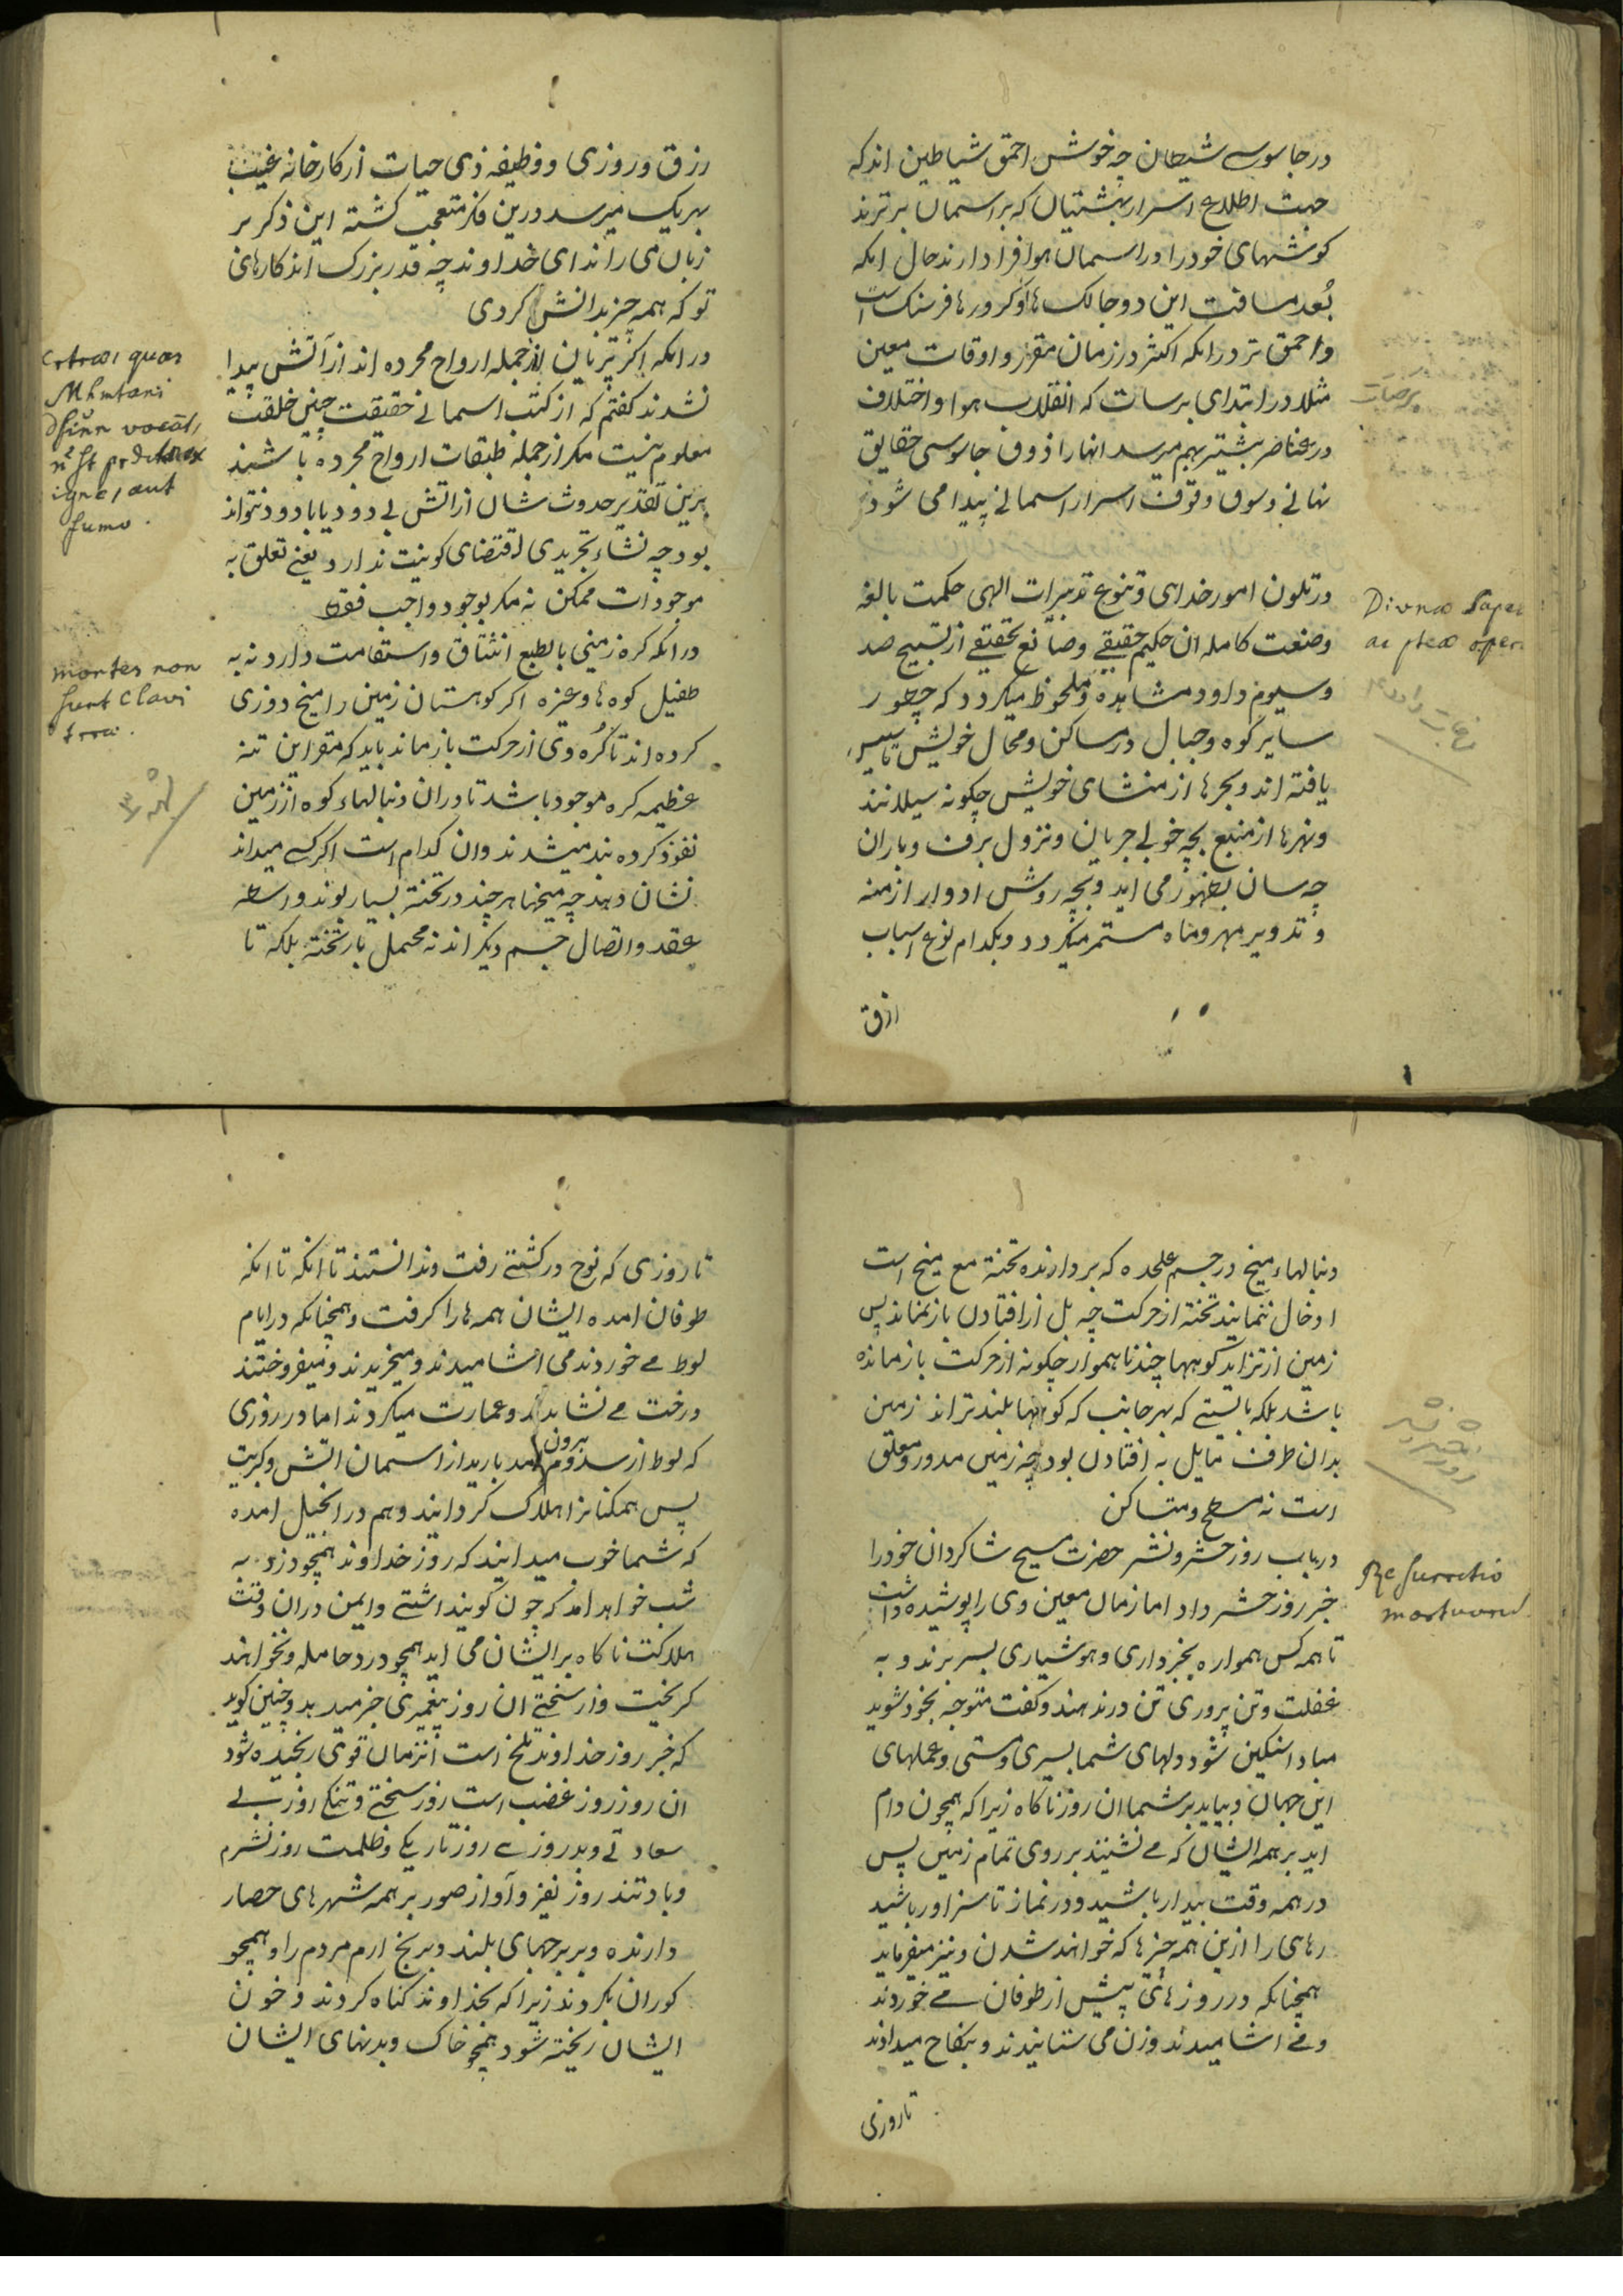 در جاسوسی شیطان چه خوش احمق شیاطین اند که
جهت اطلاع اسرار بهشتیان که بر اسمان برترند
کوشهای خود را در اسمان هوا فرا دارند حال انکه
بُعد مسافت این دو جا لک ها و کرورها فرسنک است
و احمق تر در انکه اکثر در زمان مقرر و اوقات معین
مثلا در ابتدای برسات که انقلاب هوا و اختلاف
در عناصر بیشتر بهم میرسد انها را ذوق جاسوسی حقایق
نهانی و سوق وقوف اسرار اسمانی پیدا می شود
در تلون امور خدای و تنوع تدبیرات الهی حکمت بالغه
و صنعت کامله ان حکیم حقیقی و صانع تحقیقی از تسبیح صد
و سیوم داود مشاهده و ملحوظ میکردد که چطور
سایر کوه و جبال در مساکن و محال خویش تاسیس
یافته اند و بحرها از منشای خویش چکونه سیلانند
و نهرها از منبع بچه خوبی جریان و نزول برف و باران
چه سان بظهور می اید و بچه روش ادوار ازمنه
و تدویر مهر و ماه مستمر میکردد و بکدام نوع اسباب
ازق
برسات
Divinæ Sapei
رزق و روزی و وظیفه ذی حیات از کارخانه غیب
بهریک میرسد درین فکر متعجب کشته این ذکر بر
زبان می راند ای خداوند چه قدر بزرک اند کارهای
تو که همه چیز بدانش کردی
در انکه اکثر پریان از جمله ارواح مجرده اند از آتش پیدا
نشدند کفتم که از کتب اسمانی حقیقت چنین خلقت
معلوم نیست مکر از جمله طبقات ارواح مجرده باشند
برین تقدیر حدوث شان از اتش بی دود یا با دود نتواند
بود چه نشاء تجریدی اقتضای کونیت ندارد یعنی تعلق به
موجودات ممکن نه مکر بوجود واجب فقط
در انکه کره زمینی بالطبع انشقاق و استقامت دارد نه به
طفیل کوه ها و غیره اکر کوهستان زمین را میخ دوزی
کرده اند تا کُره وی از حرکت باز ماند باید که مقر این تنه
عظیمه کره موجود باشد تا در ان دنبالهاء کوه از زمین
نفوذ کرده بند میشدند و ان کدام است اکر کسی میداند
نشان دهد چه میخها هر چند در تختهٔ بسیار بوند واسطه
عقد و اتصال جسم دیکر اند نه محتمل بار تخته بلکه تا
quas
Mhmtani
vocāt,
igne, aut
fumo.
montes non
sunt clavi
دنبالهاء میخ در جسم علحده که بردارنده تختهٔ مع میخ است
ادخال ننمایند تخته از حرکت چه بل از افتادن باز نماند پس
زمین از تزاید کوهها چند ناهموار چکونه از حرکت باز مانده
باشد بلکه بایستی که بهر جانب که کوهها بلندتر اند زمین
بدان طرف مایل به افتادن بود چه زمین مدور و معلق
است نه مسطح و متساکن
در باب روز حشر و نشر حضرت مسیح شاکردان خود را
خبر روز حشر داد اما زمان معین وی را پوشیده داشت
تا همه کس همواره بخبرداری و هوشیاری بسر برند و به
غفلت و تن پروری تن در ندهند و کفت متوجه بخود شوید
مبادا سنکین شود دلهای شما بسیری و مستی و عملهای
این جهان و بیاید بر شما ان روز ناکاه زیرا که همچون دام
اید بر همه ایشان که می نشینند بر روی تمام زمین پس
در همه وقت بیدار باشید و در نماز تا سزاور باشید
رهای را ازین همه چیزها که خواهند شدن و نیز میفرماید
همچنانکه در روزهای پیش از طوفان می خوردند
و می اشامیدند و زن می ستانیدند و بنکاح میدادند
تا روزی
روز حشر و نشر
Resurrectio
mortuorum
تا روزی که نوح در کشتی رفت و ندانستند تا انکه تا انکه
طوفان امده ایشان همه ها را کرفت و همچنانکه در ایام
لوط می خوردند می اشامیدند و میخریدند و میفروختند
درخت می نشاندند و عمارت میکردند اما در روزی
که لوط از سدوم بیرون امد بارید از اسمان اتش و کبریت
پس همکنانرا هلاک کردانید و هم در انجیل امده
که شما خوب میدانید که روز خداوند همچو دزد به
شب خواهد امد که چون کویند اشتی و ایمن دران وقت
هلاکت ناکاه بر ایشان می اید همچو درد حامله و نخواهند
کریخت و از سختی ان روز پیغمبری خبر میدهد و چنین کوید
که خبر روز خداوند تلخ است انزمان قوی رنجیده شود
ان روز روز غضب است روز سختی و تنکی روز بی
سعادتی و بدروزی روز تاریکی و ظلمت روز نشرم
و باد تند روز نفیر و آواز صور بر همه شهرهای حصار
دارنده و بر برجهای بلند و برنج ارم مردم را و همچو
کوران بکردند زیرا که بخداوند کناه کردند و خون
ایشان ریخته شود همچو خاک و بدنهای ایشان